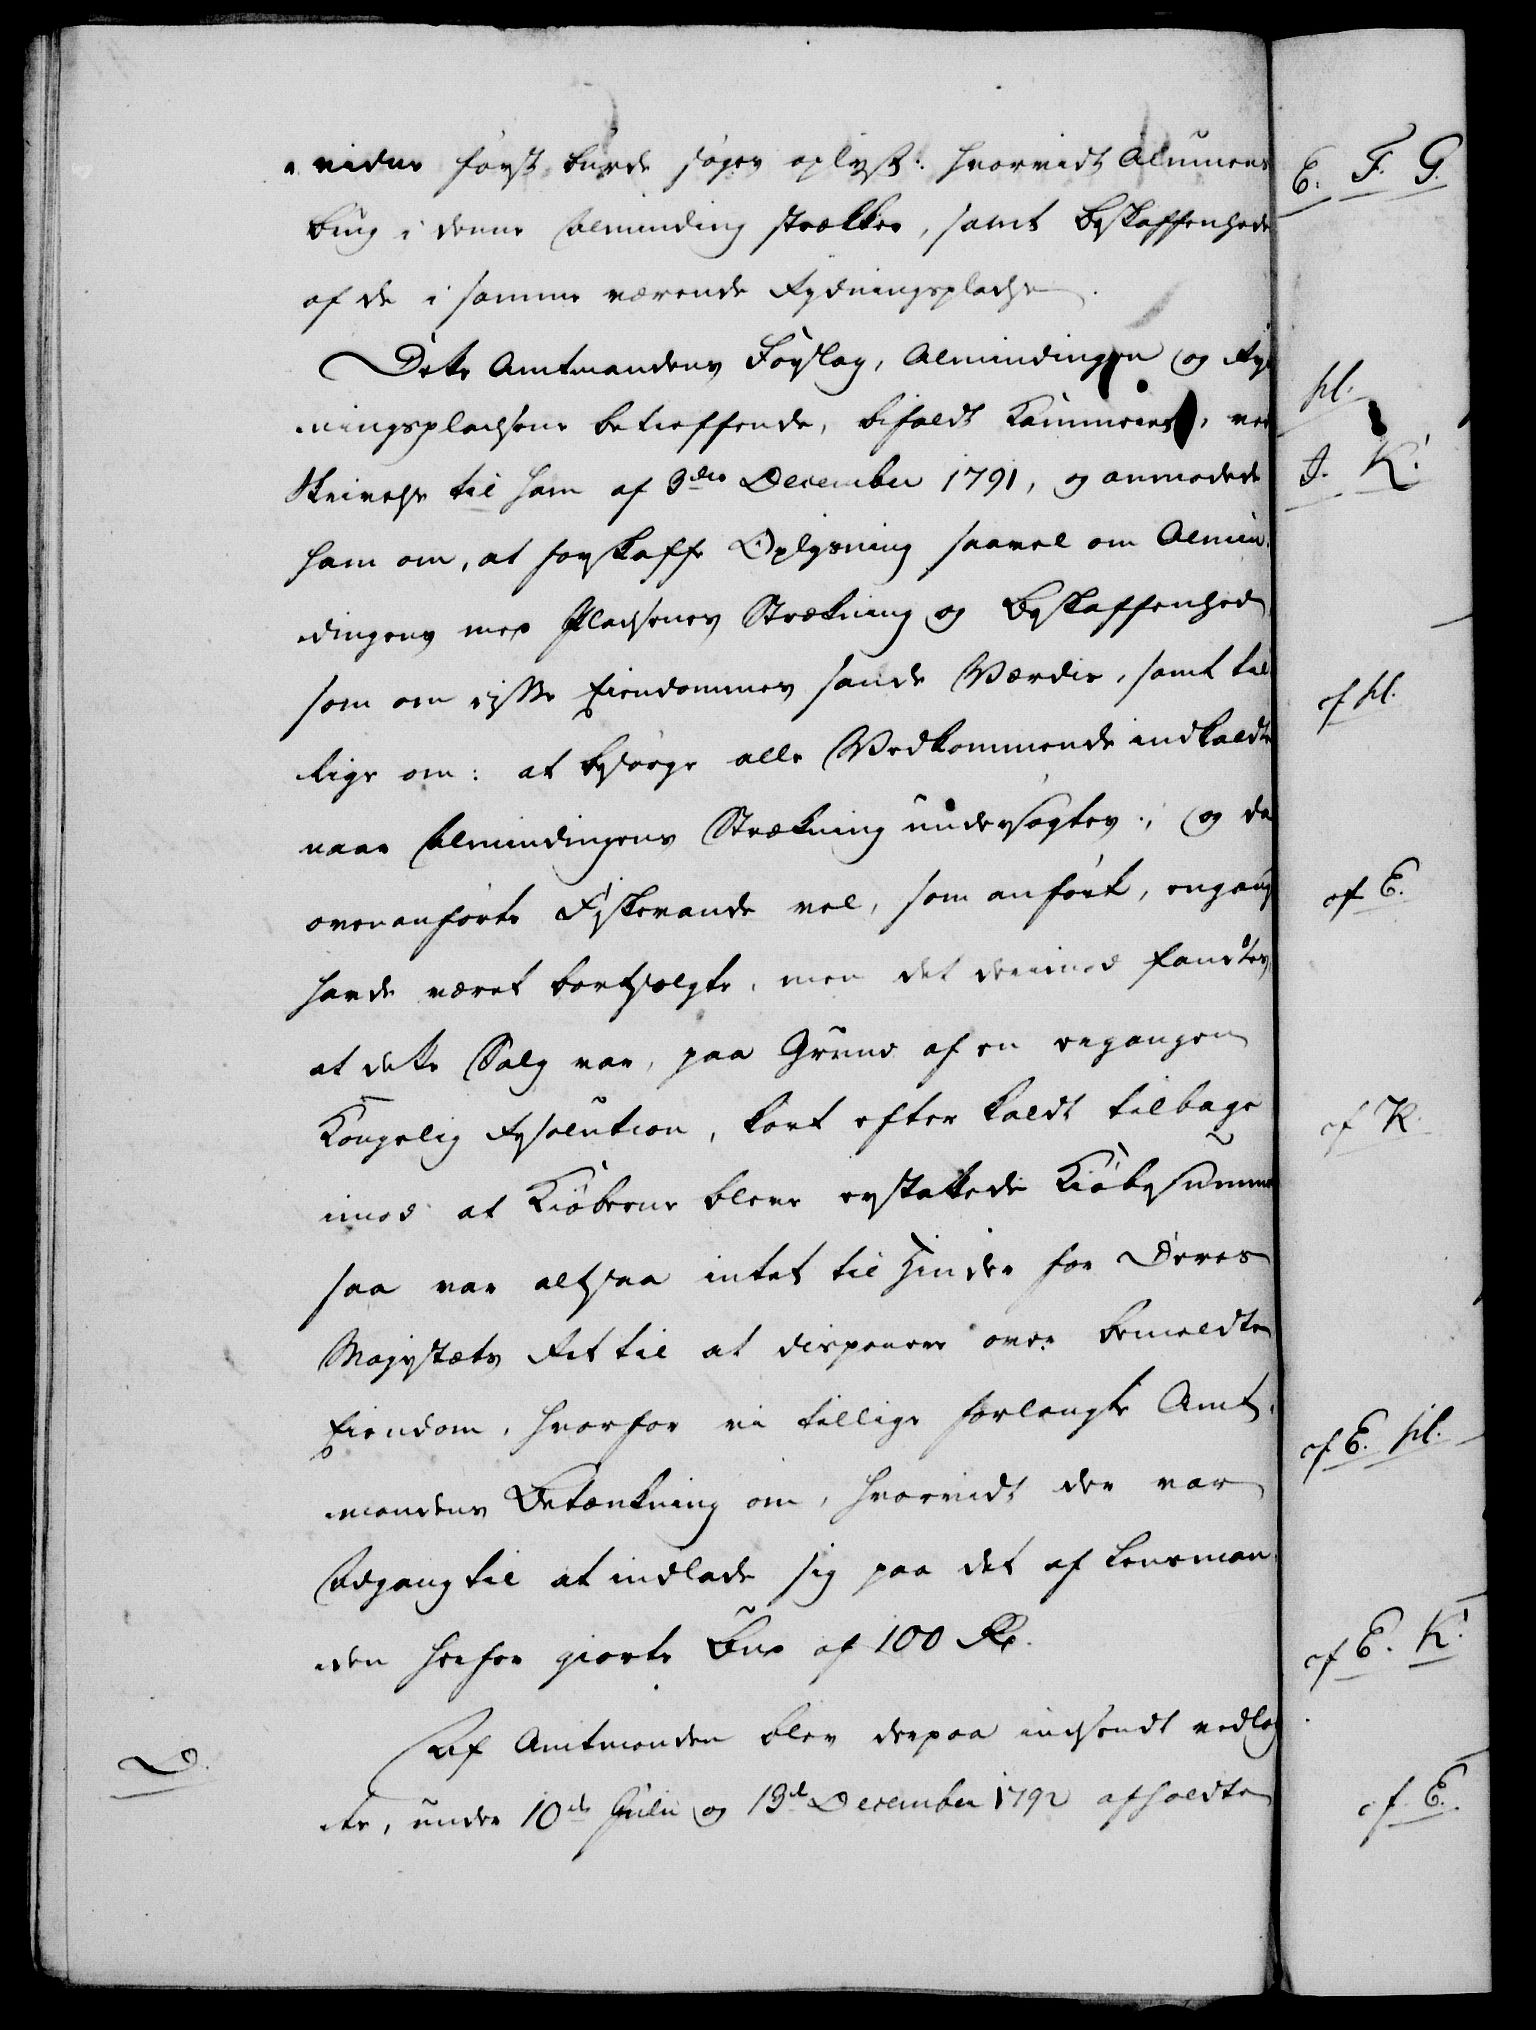 videre først burde søges oplyst: hvorvidt Alumens
brug i denne Alminding strækker, samt Beskaffenhede
af de i samme værende Rydningspladse.
Dette Amtmandens Forslag, Almindingen og Ryd
ningspladsene betreffende, bifaldt Kammeret, ved
Skrivelse til ham af 3die December 1791, og anmodede
ham om, at forskaffe Oplysning saavel om Almin
dingens med Pladsenes Strækning og Beskaffenhed
som om disse Eiendommes sande Værdie, samt til
lige om: at besørge alle Vedkommende indkaldte
naar Almindingens Strækning undersøgtes; og da
ovenanførte Fiskevande vel, som anført, engang
havde været bortsolgte, men det derimod fandtes
at dette Salg var, paa Grund af en ergangen
Kongelig Resolution, kort efter kaldt tilbage
imod at Kiøberne bleve erstattede Kiøbesumme
saa var altsaa intet til Hinder for Deres
Majestæts Ret til at disponere over bemeldte
Eiendom, hvorfor vi tillige forlangte Amt
mandens Betænkning om, hvorvidt der var
Adgang til at indlade sig paa det af Lensman
den herfor giorte Bud af 100 Rd.
Af Amtmanden blev derpaa indsendt vedlag
D.
te, under 10de Julii og 13de December 1792 afholdte
E. F. G.
H.
J. K.
af H.
af E.
af K.
af E. H.
af E. K.
af E.